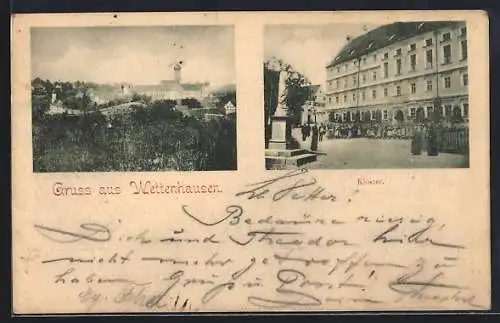 Gruss aus Wettenhausen.
Kloster.
L. Vetter!
Bedaure riesig,
Dich und Theodor hier
nicht mehr getroffen zu
haben. Gruß u. Prost
Dein